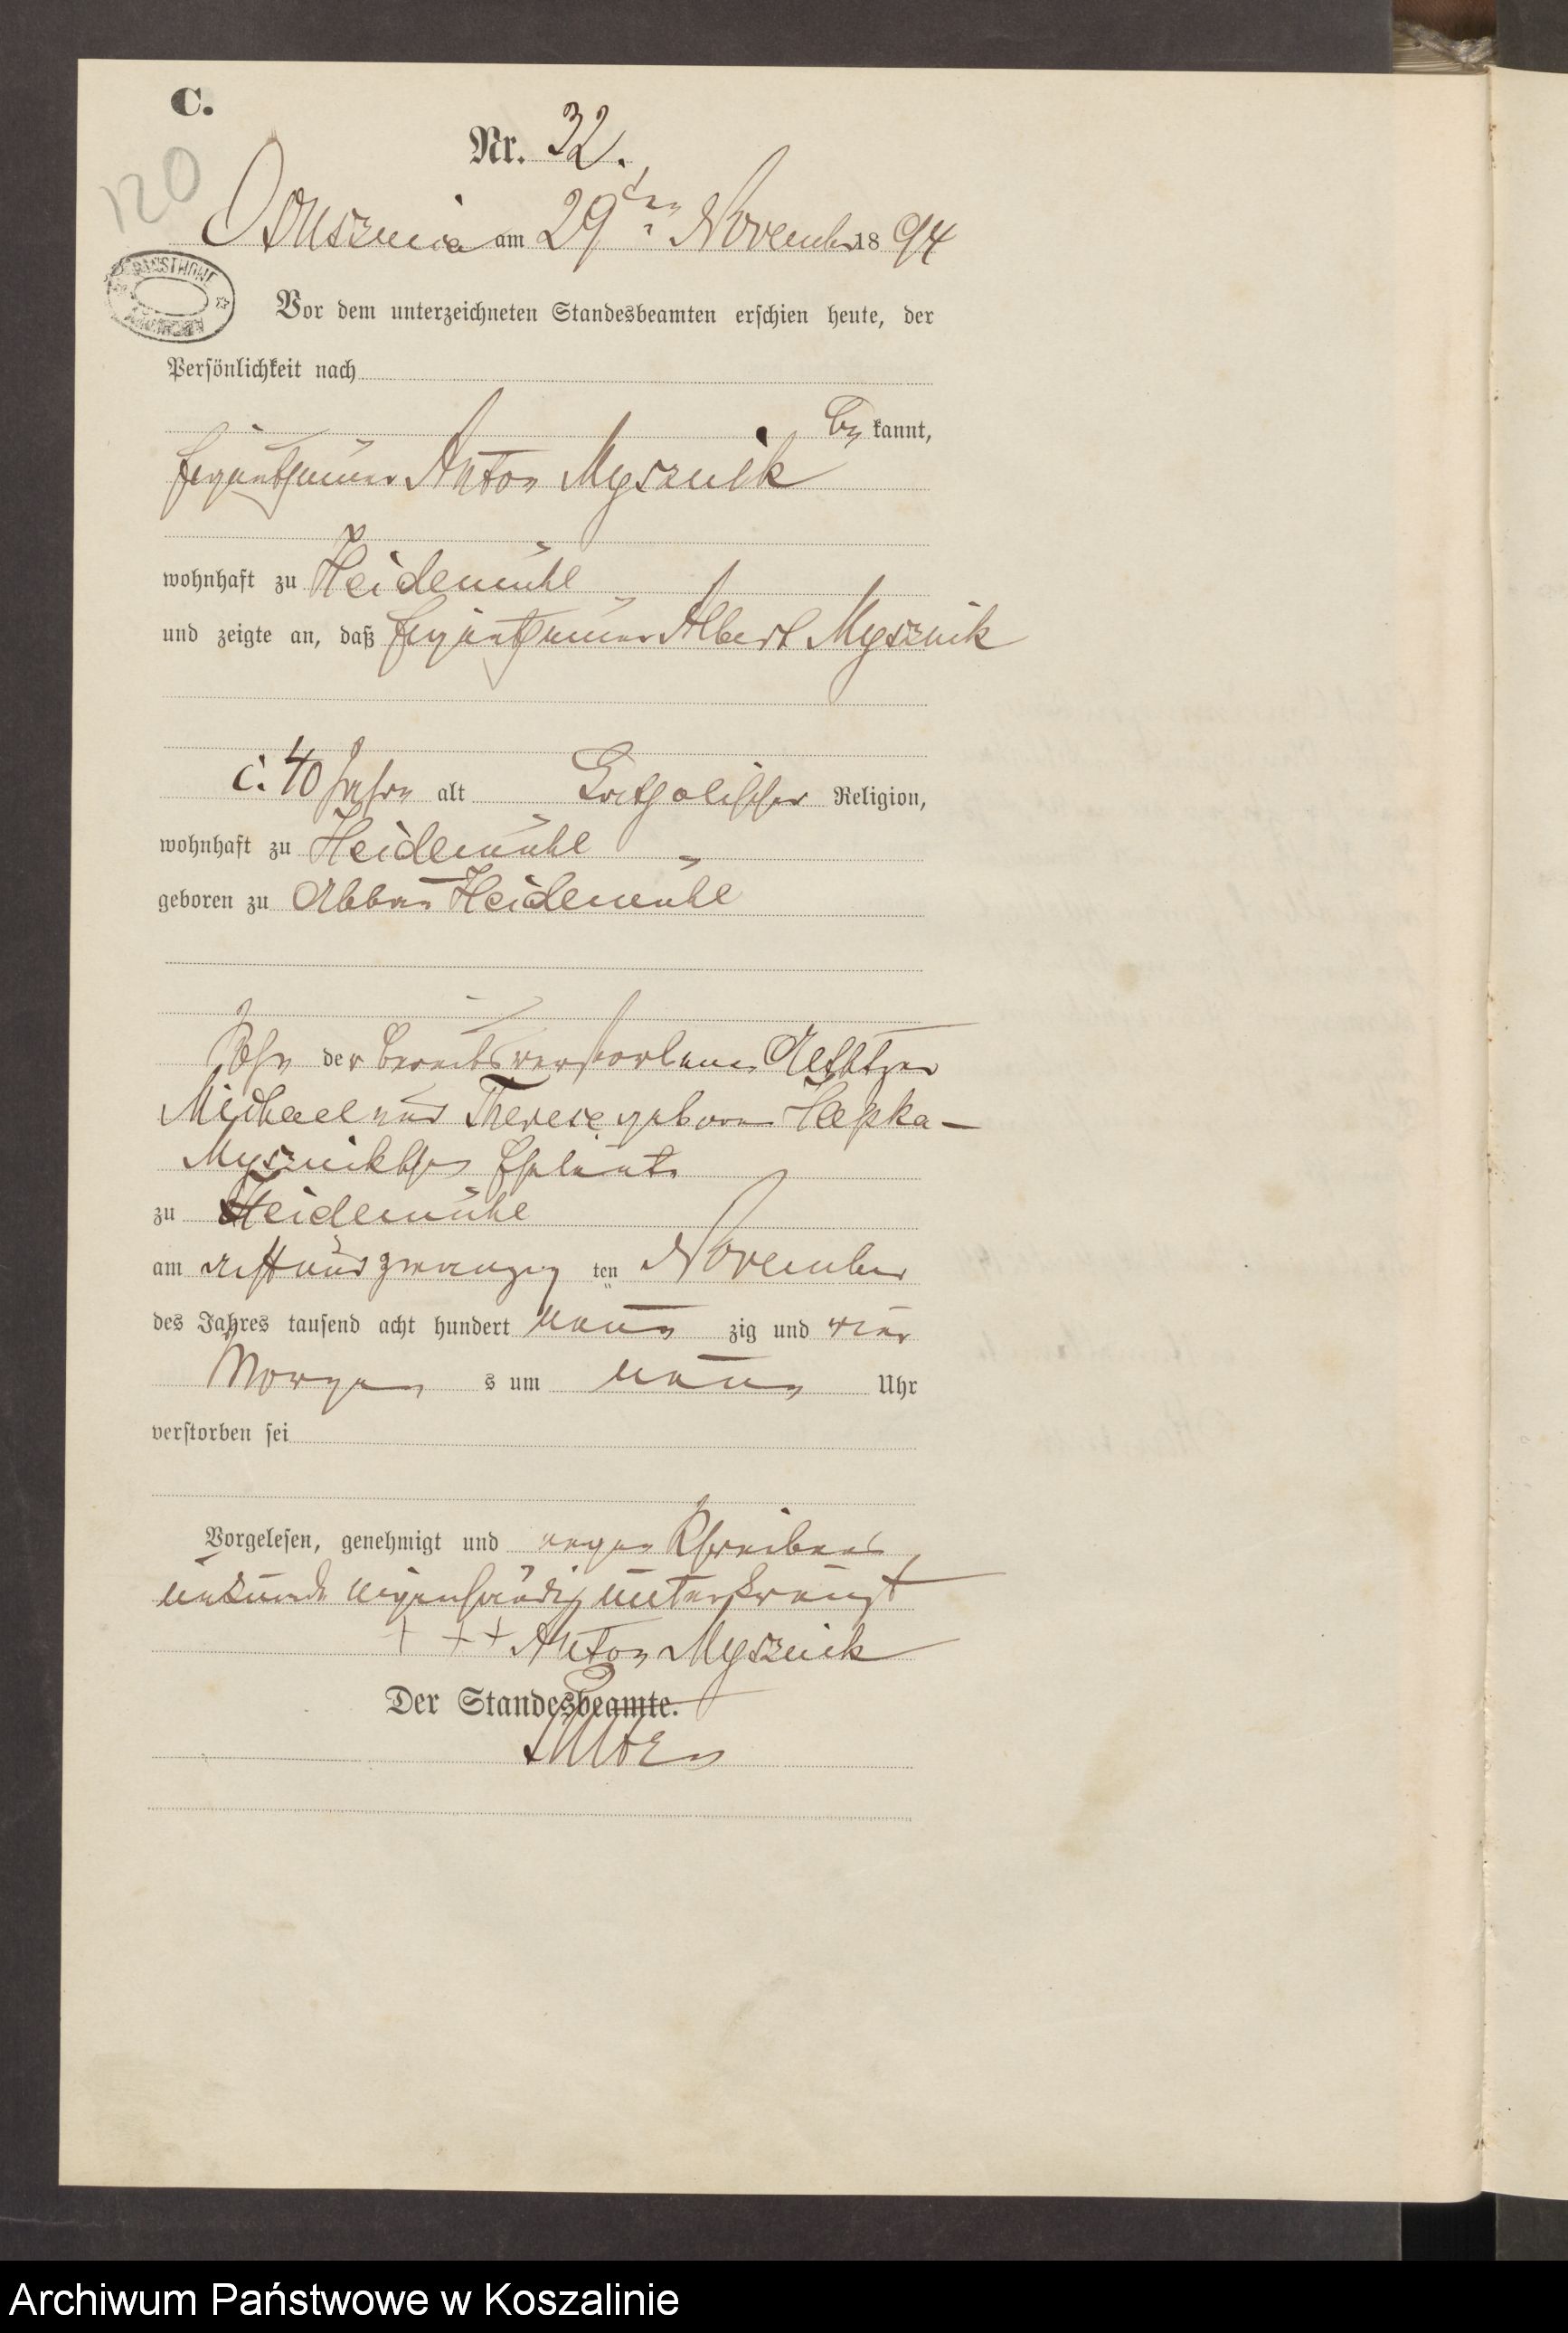 C.
Nr. 32.
120
Ossusznica am 29ten November 1894
PAŃSTWOWE
Vor dem unterzeichneten Standesbeamten erschien heute, der
Persönlichkeit nach
be kannt,
Eigenthümer Anton Mysznik
wohnhaft zu Heidemühl
und zeigte an, daß Eigenthümer Albert Mysznik
c. 40 Jahre alt Katholischer Religion,
wohnhaft zu Heidemühl
geboren zu Abbau Heidemühl
Sohn der bereits verstorbenen
Michael und Therese geborne Hapka –
Mysznikschen Eheleute
zu Heidemühl
am achtundzwanzig ten November
des Jahres tausend acht hundert neun zig und vier
Morgen s um neun Uhr
verstorben sei
Vorgelesen, genehmigt und wegen Schreibens
unkunde eigenhändig unterkreuzt
+ + + Anton Mysznik
Der Standesbeamte.
Archiwum Państwowe w Koszalinie